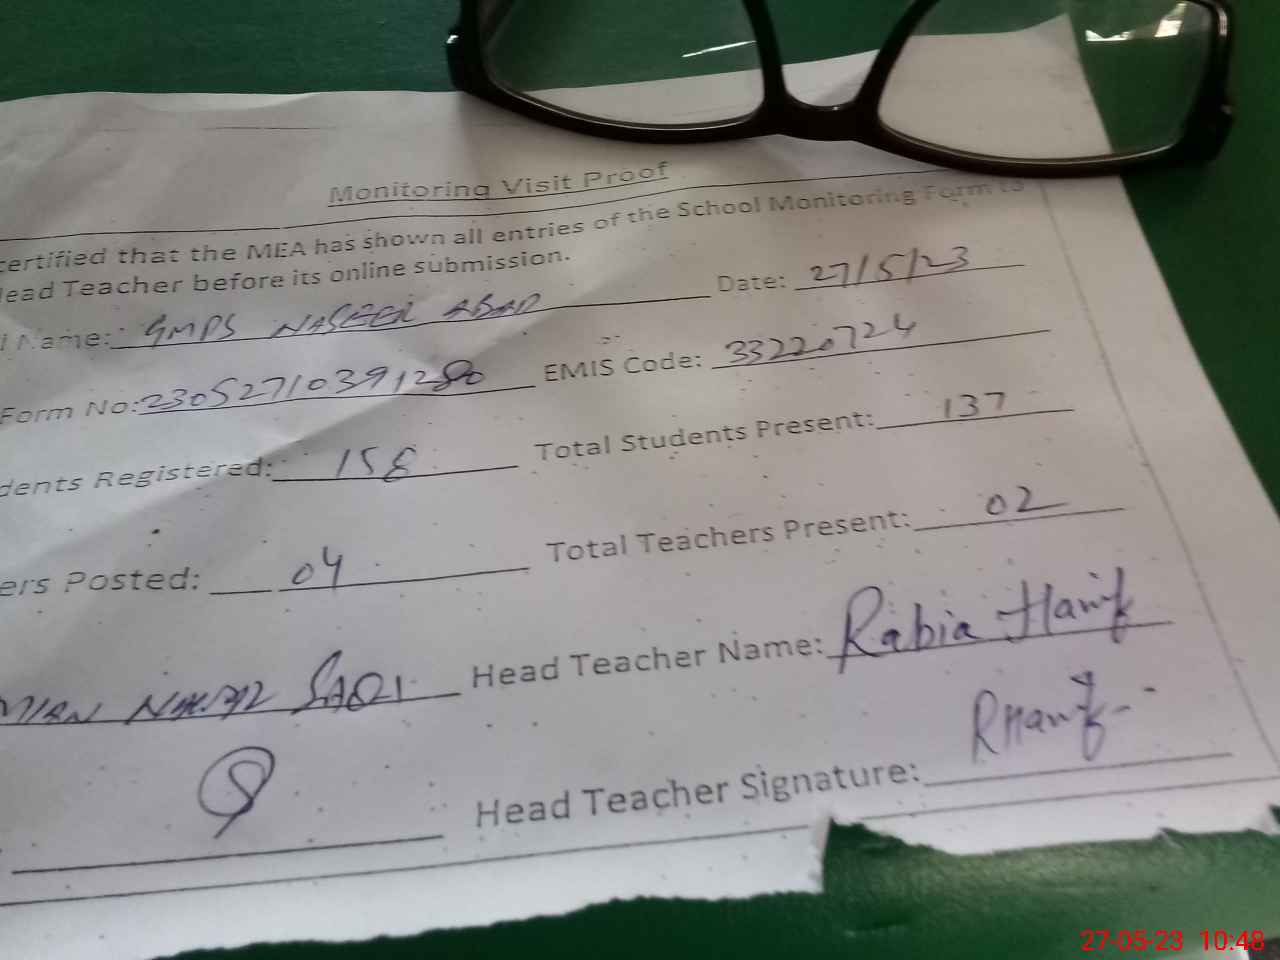 Monitoring Visit Proof
certified that the MEA has shown all entries of the School Monitoring Form to
Head Teacher before its online submission.
Name: GMPS NASEER ABAD Date: 27/5/23
Form No: 23052710391280 EMIS Code: 33220724
dents Registered: 158 Total Students Present: 137
ers Posted: 04 Total Teachers Present: 02
MIAN NAWAZ SAQI Head Teacher Name: Rabia Hanif
Head Teacher Signature: RHanif
27-05-23 10:48